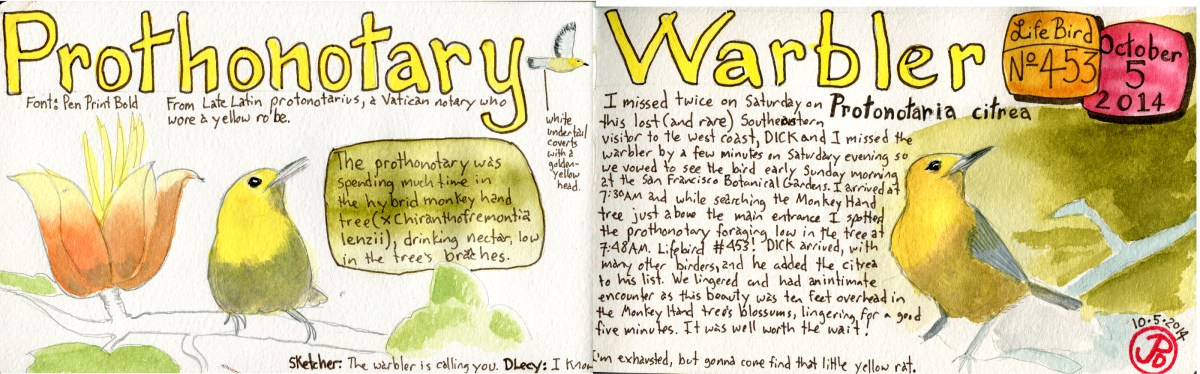 Prothonotary
Font: Pen Print Bold
From Late Latin protonotarius, a Vatican notary who
wore a yellow robe.
white
undertail
coverts
with a
golden-
yellow
head.
The prothonotary was
spending much time in
the hybrid monkey hand
tree (x Chiranthofremontia
lenzii), drinking nectar, low
in the tree's braches.
Sketcher: The warbler is calling you. DLecy: I Know
Warbler
Life Bird
No 453
October
5
2014
Protonotaria citrea
I missed twice on Saturday on
this lost (and rare) Southeastern
visitor to the west coast, DICK and I missed the
warbler by a few minutes on Saturday evening so
we vowed to see the bird early Sunday morning
at the San Francisco Botanical Gardens. I arrived at
7:30AM and while searching the Monkey Hand
tree just above the main entrance I spotted
the prothonotary foraging low in the tree at
7:48AM. Lifebird #453! DICK arrived, with
many other birders, and he added the citrea
to his list. We lingered and had an intimate
encounter as this beauty was ten feet overhead in
the Monkey Hand tree's blossums, lingering for a good
five minutes. It was well worth the wait!
I'm exhausted, but gonna come find that little yellow rat.
10.5.2014
JPD